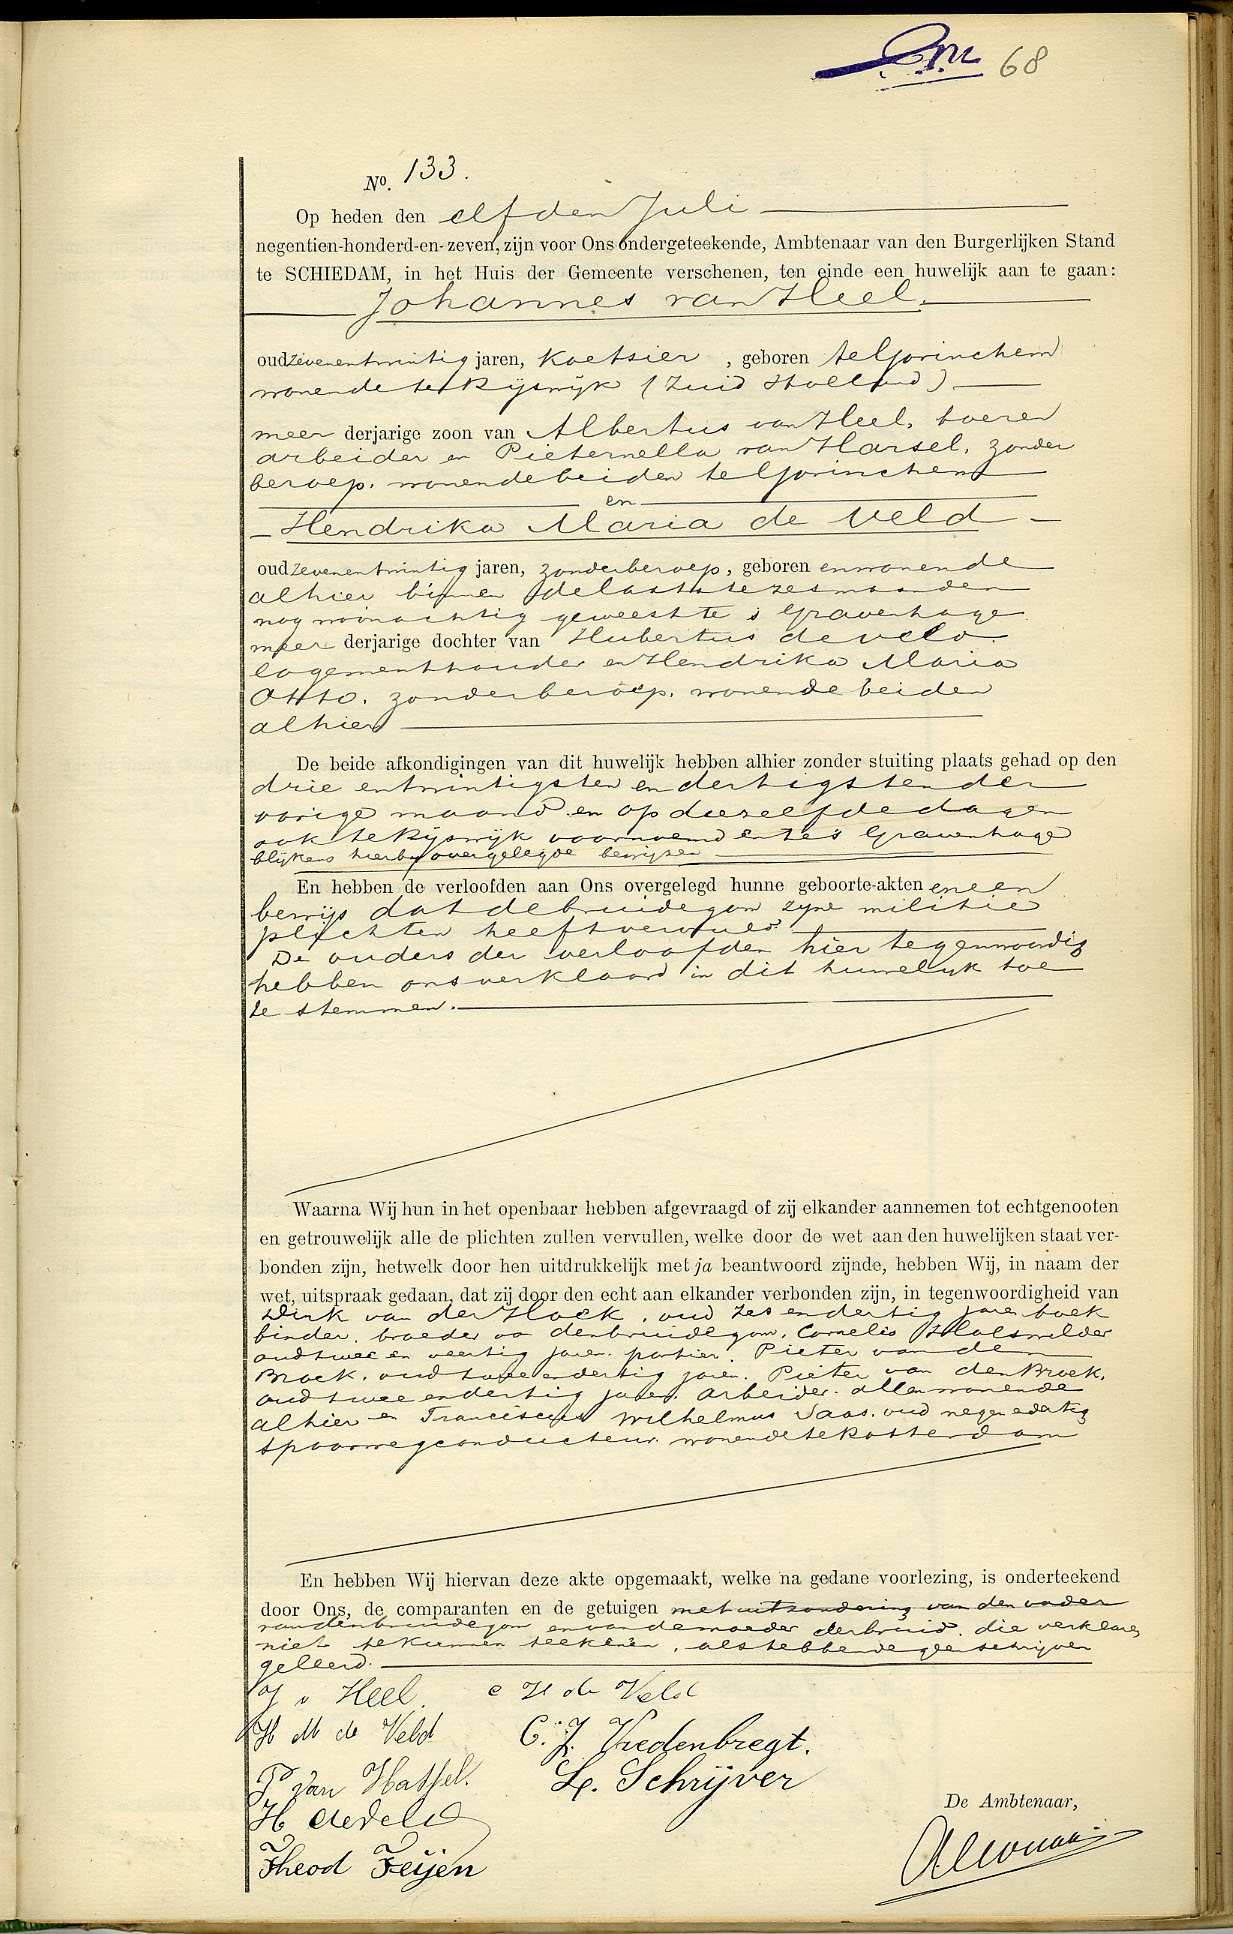 68
No. 133.
Op heden den elfden Juli
negentien-honderd-en-zeven, zijn voor Ons ondergeteekende, Ambtenaar van den Burgerlijken Stand
te SCHIEDAM, in het Huis der Gemeente verschenen, ten einde een huwelijk aan te gaan:
Johannes van Heel
oud zevenentwintig jaren, koetsier, geboren te Gorinchem
wonende te Rijswijk (Zuid Holland)
meer derjarige zoon van Albertus van Heel, boeren
arbeider en Pieternella van Harsel, zonder
beroep, wonende beiden te Gorinchem
en
Hendrika Maria de Veld
oud zevenentwintig jaren, zonder beroep, geboren en wonende
alhier binnen de laatste zes maanden
nog woonachtig geweest te s Gravenhage
meer derjarige dochter van Hubertus de Veld
logementhouder en Hendrika Maria
Otto, zonder beroep, wonende beiden
alhier
De beide afkondigingen van dit huwelijk hebben alhier zonder stuiting plaats gehad op den
drie entwintigsten en dertigsten der
vorige maand en op diezelfde dagen
ook te Rijswijk voornoemd en te s Gravenhage
blijkens hierbij overgelegde bewijzen
En hebben de verloofden aan Ons overgelegd hunne geboorte-akten en een
bewijs dat de bruidegom zijne militie
plichten heeft vervuld
De ouders der verloofden hier tegenwoordig
hebben ons verklaard in dit huwelijk toe
te stemmen.
Waarna Wij hun in het openbaar hebben afgevraagd of zij elkander aannemen tot echtgenooten
en getrouwelijk alle de plichten zullen vervullen, welke door de wet aan den huwelijken staat ver-
bonden zijn, hetwelk door hen uitdrukkelijk met ja beantwoord zijnde, hebben Wij, in naam der
wet, uitspraak gedaan, dat zij door den echt aan elkander verbonden zijn, in tegenwoordigheid van
Dirk van der Hoek, oud zes en dertig jaren boek
binder, broeder den bruidegom, Cornelis
oud twee en veertig jaren, portier, Pieter van den
Broek, oud twee en dertig jaren, Pieter van den Broek,
oud twee en dertig jaren, arbeider, allen wonende
alhier en Franciscus Wilhelmus oud negen
spoorwegconducteur wonende te Rotterdam
En hebben Wij hiervan deze akte opgemaakt, welke na gedane voorlezing, is onderteekend
door Ons, de comparanten en de getuigen met uitzondering van den vader
van den bruidegom en van de moeder der bruid, die verklaren
niet te kunnen teekenen, als hebbende geen schrijven
geleerd.
J v Heel. H de Veld
H M de Veld C. J. Vredenbregt.
P van Hassel. L. Schrijver
H de Veld De Ambtenaar,
Theod Feijen